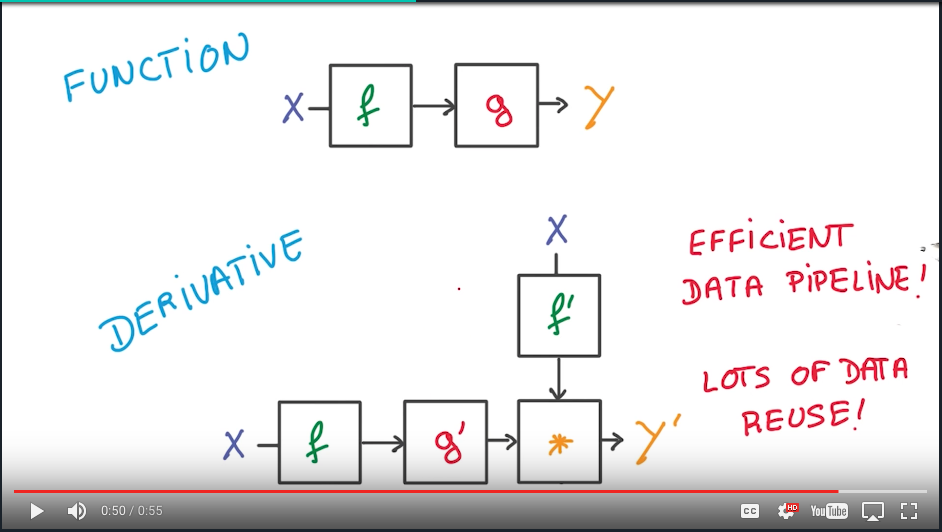 FUNCTION
X f g Y
DERIVATIVE
X
f'
X f g' * Y'
EFFICIENT
DATA PIPELINE!
LOTS OF DATA
REUSE!
0:50 / 0:55
CC
HD
YouTube